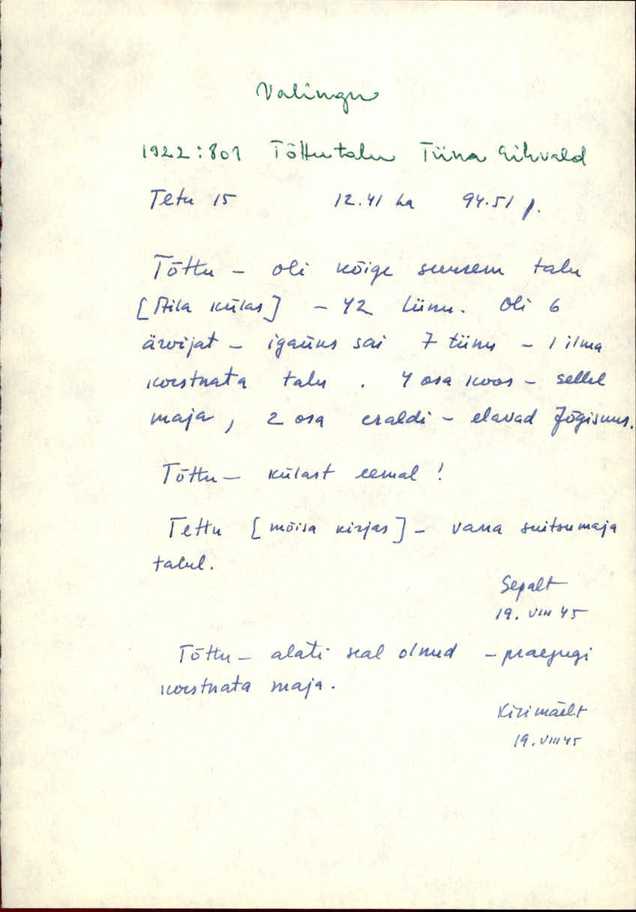 Valingu
1922:801 Tõttu talu Tiina Eihvald
Tetu 15 12.41 ha 94.51 p.
Tõttu – oli kõige suurem talu
[Aila külas] – 42 tiinu. Oli 6
ärvijat – igaüks sai 7 tiinu – 1 ilma
korstnata talu. 4 osa koos – sellel
maja, 2 osa eraldi – elavad Jõgisuus.
Tõttu – külast eemal!
Tettu [mõisa kirjas] – vana suitsumaja
talul.
Sepalt
19. VIII 45
Tõttu – alati seal olnud – praegugi
korstnata maja.
Kirimäelt
19. VIII 45